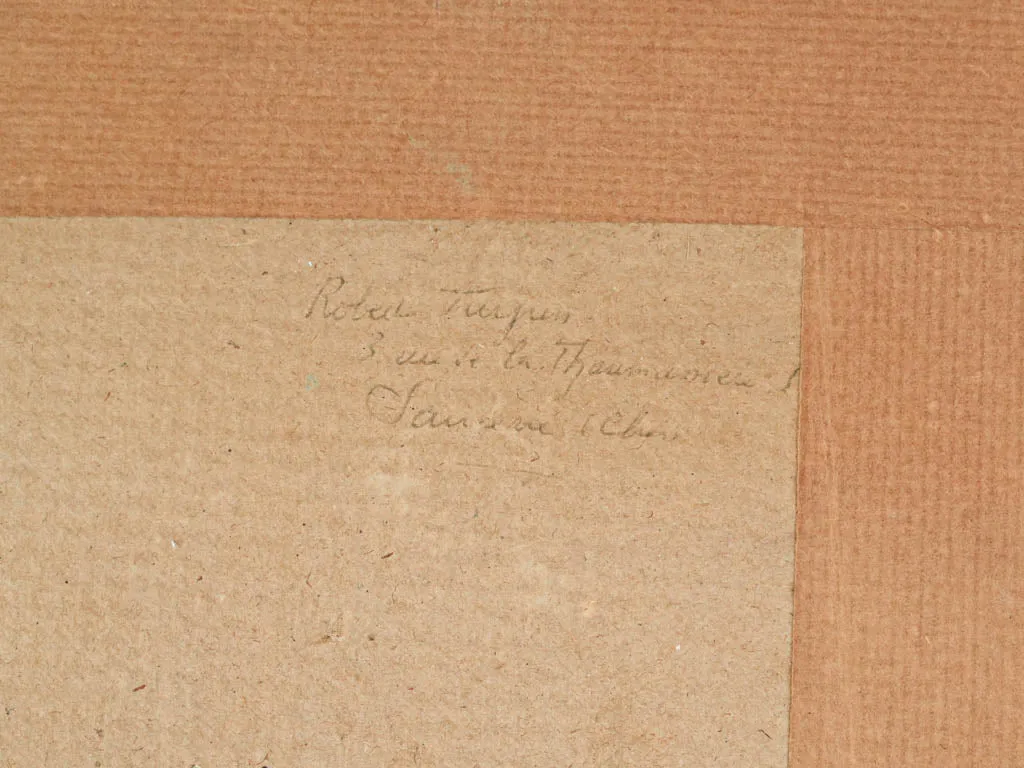 Robert
3 rue de la Thaumassière
Sancerre (Cher)